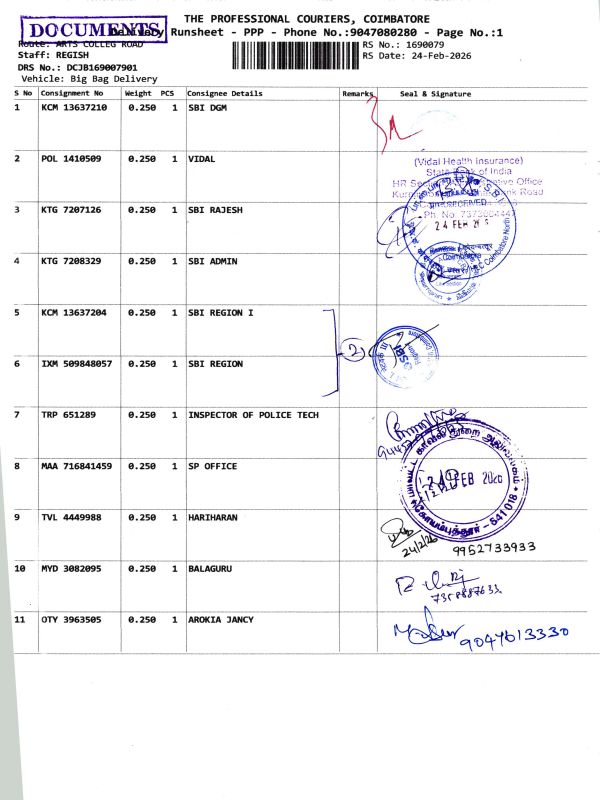 THE PROFESSIONAL COURIERS, COIMBATORE
DOCUMENTS
Delivery Runsheet - PPP - Phone No.:9047080280 - Page No.:1
Route: ARTS COLLEG ROAD
RS No.: 1690079
Staff: REGISH
RS Date: 24-Feb-2026
DRS No.: DCJB169007901
Vehicle: Big Bag Delivery
S No Consignment No Weight PCS Consignee Details Remarks Seal & Signature
1 KCM 13637210 0.250 1 SBI DGM
2 POL 1410509 0.250 1 VIDAL
(Vidal Health Insurance)
State Bank of India
3 KTG 7207126 0.250 1 SBI RAJESH
RECEIVED
24 FEB
4 KTG 7208329 0.250 1 SBI ADMIN
Coimbatore
5 KCM 13637204 0.250 1 SBI REGION I
2
SBI
6 IXM 509848057 0.250 1 SBI REGION
7 TRP 651289 0.250 1 INSPECTOR OF POLICE TECH
8 MAA 716841459 0.250 1 SP OFFICE
24 FEB 2026
641 018
9 TVL 4449988 0.250 1 HARIHARAN
24/2/26 9952733933
10 MYD 3082095 0.250 1 BALAGURU
11 OTY 3963505 0.250 1 AROKIA JANCY
9047613330